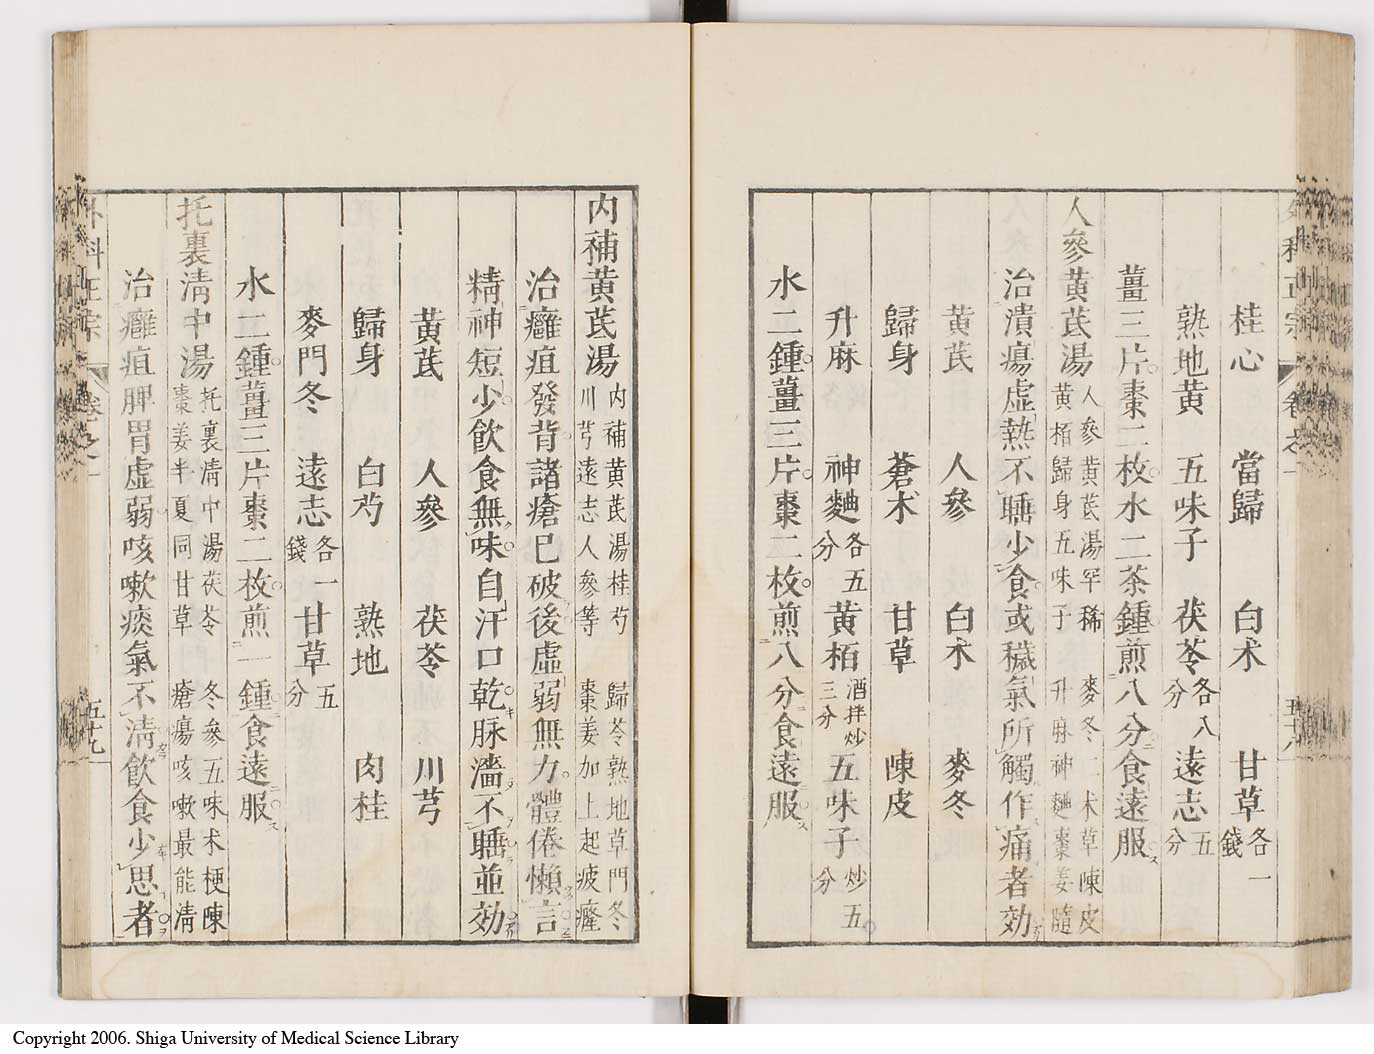 外科正宗 卷之一 五十八
桂心 當歸 白朮 甘草各一錢
熟地黃 五味子 茯苓各八分 遠志五分
薑三片棗二枚水二茶鍾煎八分食遠服
人參黃芪湯
人參黃芪湯罕稀 麥冬二朮草陳皮
黃栢歸身五味子 升麻神麯棗姜隨
治潰瘍虛熱不睡少食或穢氣所觸作痛者効
黃芪 人參 白朮 麥冬
歸身 蒼朮 甘草 陳皮
升麻 神麯各五分 黃栢酒拌炒三分 五味子炒五分
水二鍾薑三片棗二枚煎八分食遠服
內補黃芪湯
內補黃芪湯桂芍 歸苓熟地草門冬
川芎遠志人參等 棗姜加上起疲癃
治癰疽發背諸瘡已破後虛弱無力體倦懶言
精神短少飲食無味自汗口乾脉濇不睡並効
黃芪 人參 茯苓 川芎
歸身 白芍 熟地 肉桂
麥門冬 遠志各一錢 甘草五分
水二鍾薑三片棗二枚煎一鍾食遠服
托裏清中湯
托裏清中湯茯苓 冬參五味朮梗陳
棗姜半夏同甘草 瘡瘍咳嗽最能清
治癰疽脾胃虛弱咳嗽痰氣不清飲食少思者
外科正宗 卷之一 五十九
Copyright 2006. Shiga University of Medical Science Library